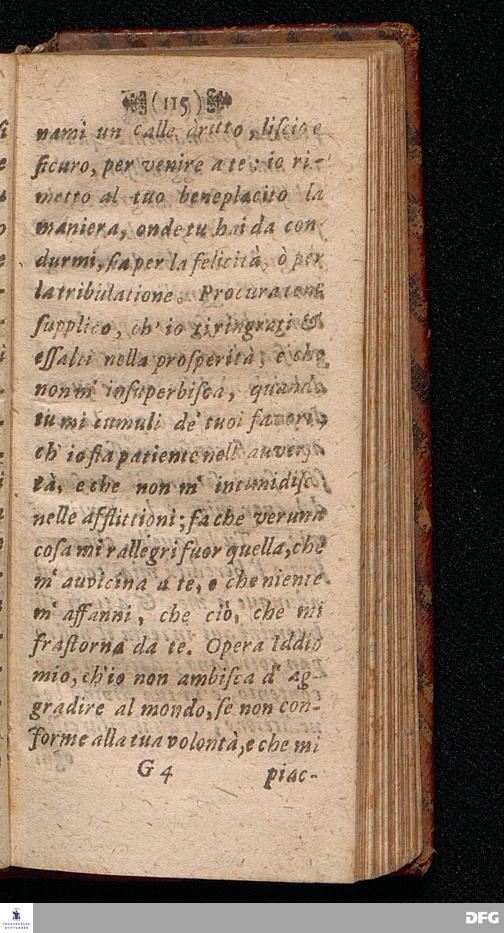 (115)
nami un calle dritto, liſcio e
ſicuro, per venire a te: io ri-
metto al tuo beneplacito la
maniera, onde tu hai da con
durmi, ſia per la felicità, ò per
la tribulatione. Procura
ſupplico, ch' io ti ringrati &
eſſalti nella proſperità, e che
non m' inſuperbiſca, quando
tu mi cumuli de' tuoi favori,
ch' io ſia patiente nell' auverſi
tà, e che non m' intimidiſca
nelle afflittioni; fa che veruna
coſa mi rallegri fuor quella, che
m' auvicina a te, e che niente
m' affanni, che ciò, che mi
fraſtorna da te. Opera Iddio
mio, ch' io non ambiſca d' ag-
gradire al mondo, ſe non con-
forme alla tua volontà, e che mi
G 4 piac-
FRANCKESCHE STIFTUNGEN
DFG